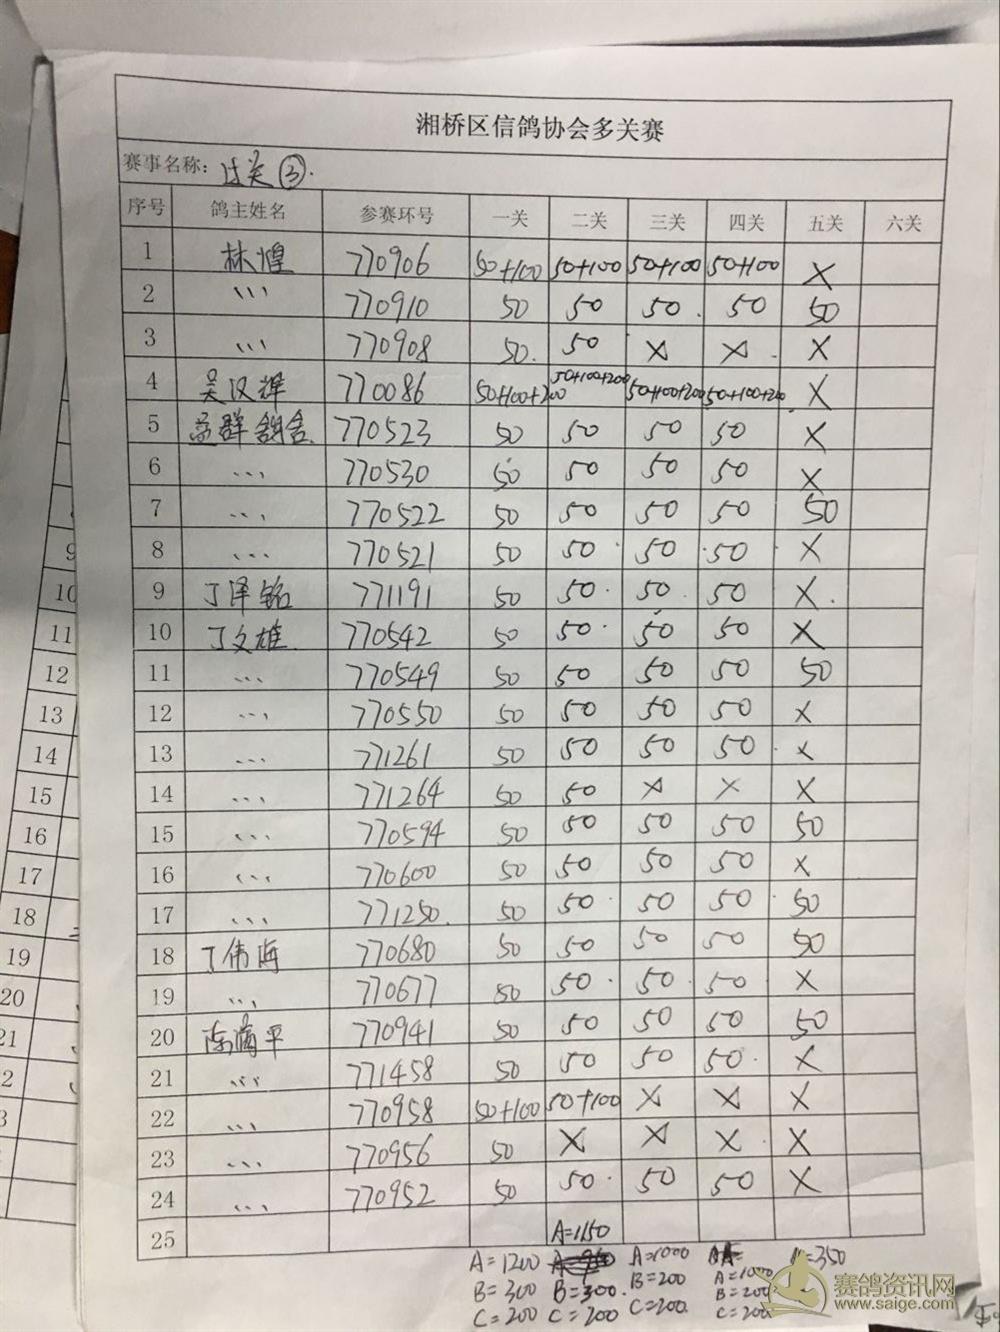 湘桥区信鸽协会多关赛
赛事名称: 过关③.
序号 鸽主姓名 参赛环号 一关 二关 三关 四关 五关 六关
1 林煌 770906 50+100 50+100 50+100 50+100 X
2 、、、 770910 50 50 50 50 50
3 、、、 770908 50 50 X X X
4 吴汉辉 770086 50+100+200 50+100+200 50+100+200 50+100+200 X
5 孟群 770523 50 50 50 50 X
6 、、、 770530 50 50 50 50 X
7 、、、 770522 50 50 50 50 50
8 、、、 770521 50 50 50 50 X
9 丁泽铭 771191 50 50 50 50 X
10 丁文雄 770542 50 50 50 50 X
11 、、、 770549 50 50 50 50 50
12 、、、 770550 50 50 50 50 X
13 、、、 771261 50 50 50 50 X
14 、、、 771264 50 50 X X X
15 、、、 770594 50 50 50 50 50
16 、、、 770600 50 50 50 50 X
17 、、、 771250 50 50 50 50 50
18 丁伟海 770680 50 50 50 50 50
19 、、、 770677 50 50 50 50 X
20 陈 平 770941 50 50 50 50 50
21 、、、 771458 50 50 50 50 X
22 、、、 770958 50+100 50+100 X X X
23 、、、 770956 50 X X X X
24 、、、 770952 50 50 50 50 X
25 A=1150
A=1200 A=1000 =350
B=300 B=300 B=200 A=1000
C=200 C=200 C=200 B=200
C=200
9
10
11
12
13
14
15
16
17
18
19
20
21
2
3
赛鸽资讯网
www.saige.com